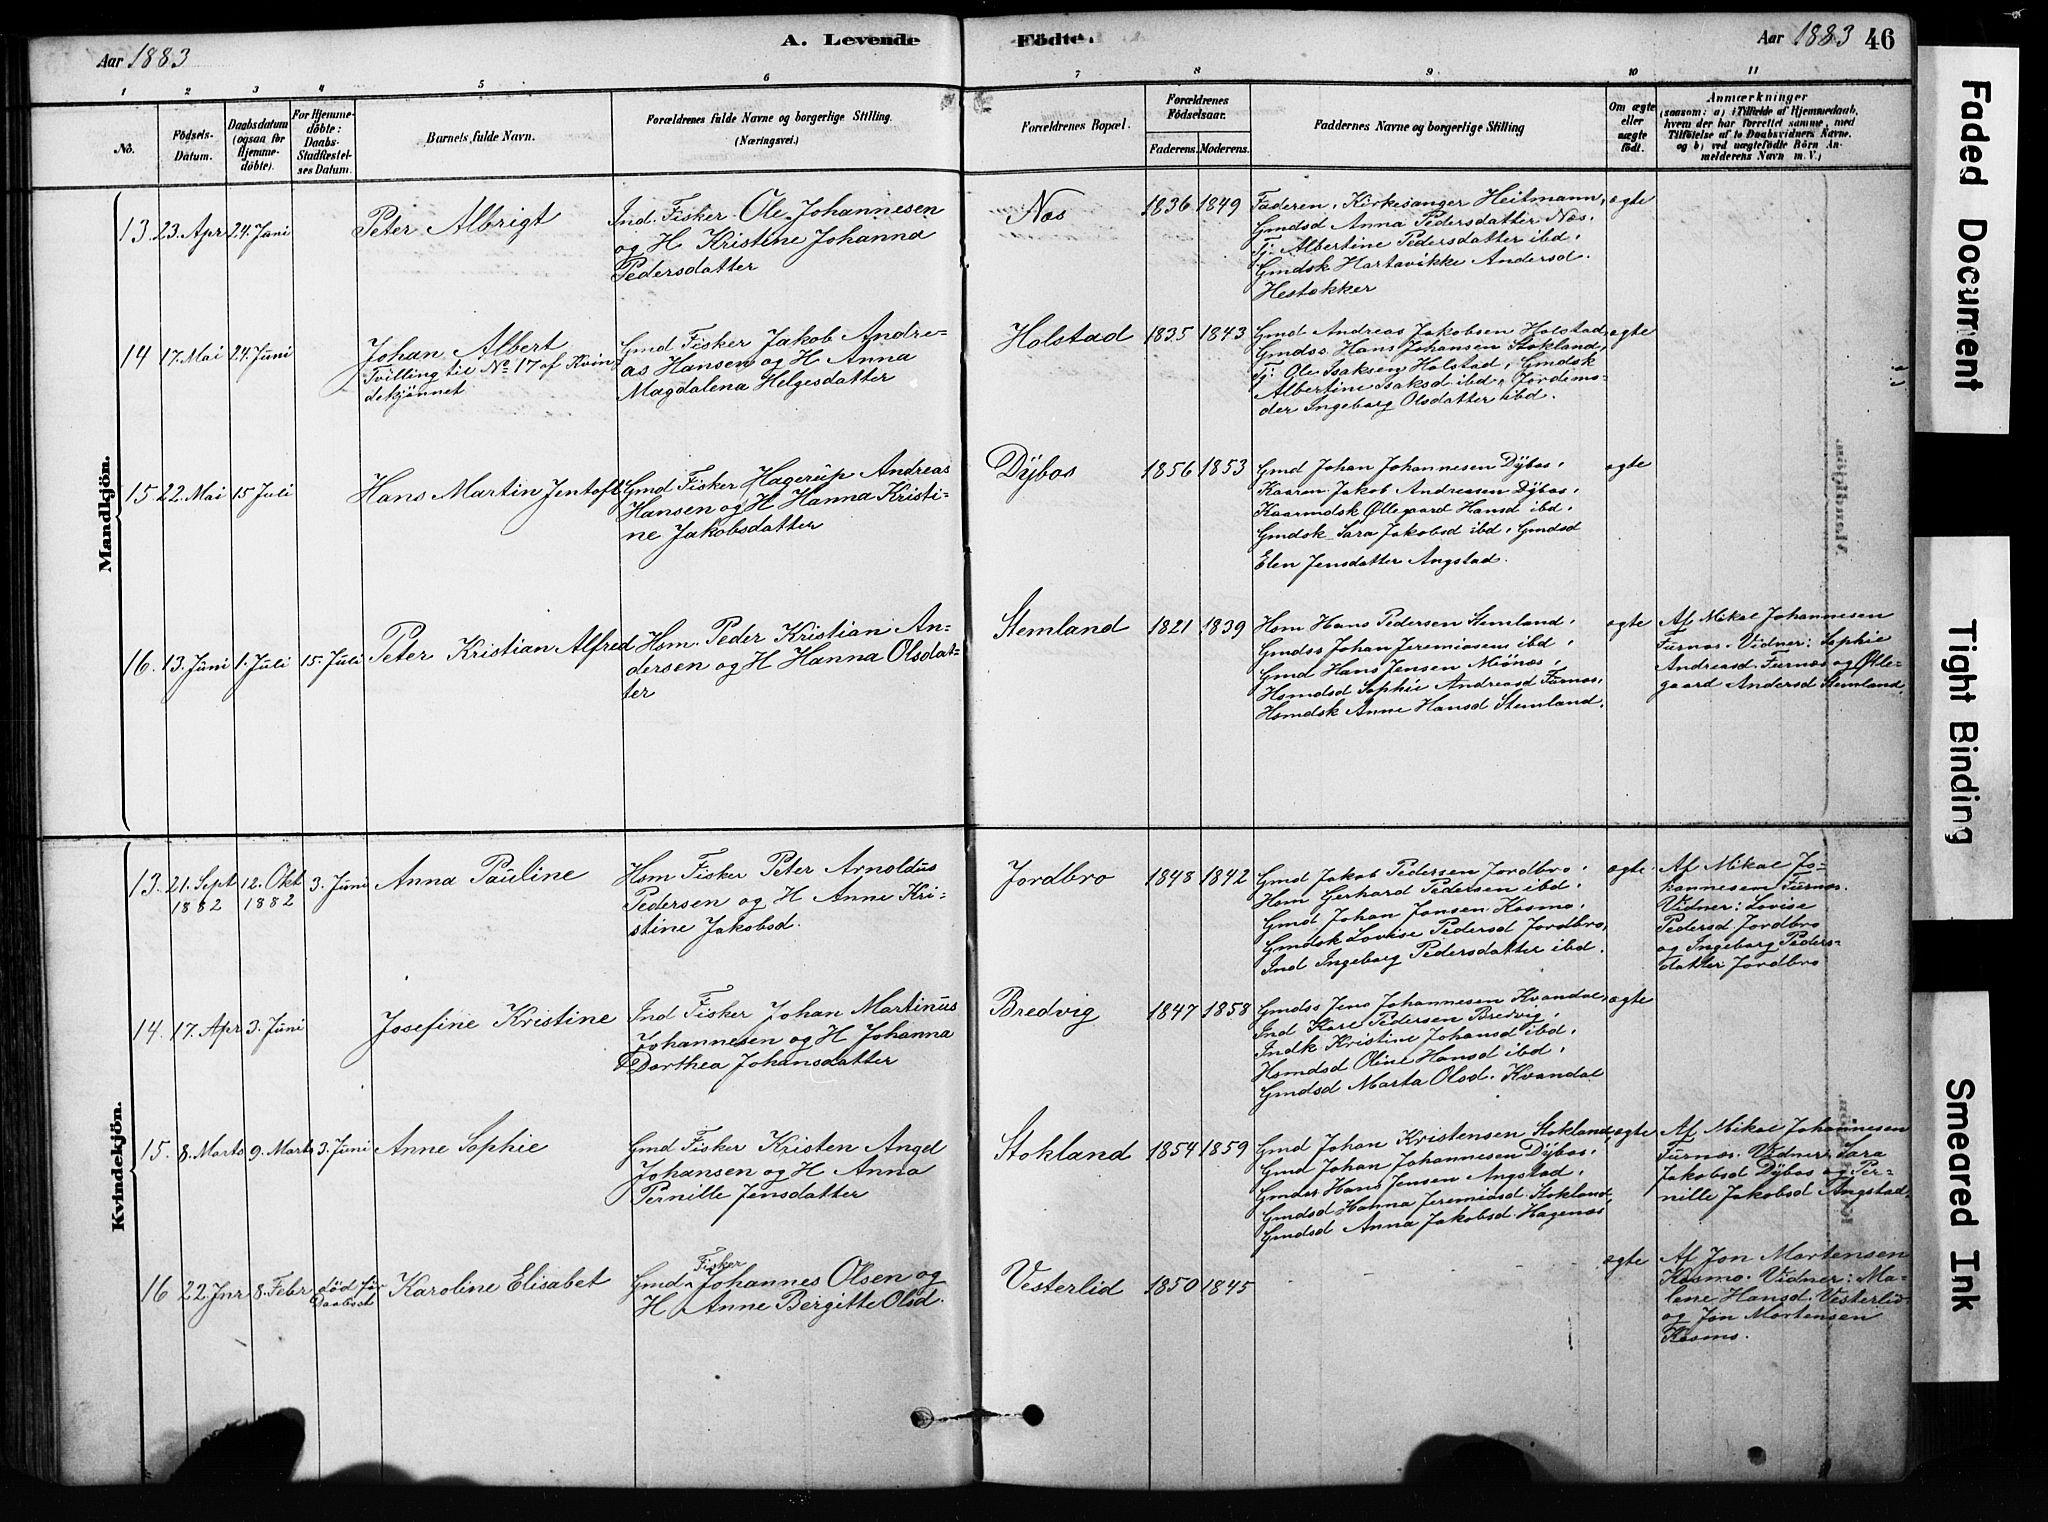 Aar 1883
A. Levende
Födte.
Aar 1883
46
1 2 3 4 5 6 7 8 9 10 11
No.
Födsels-
Datum.
Daabsdatum
(ogsaa for
Hjemme-
döbte).
For Hjemme-
döbte:
Daabs-
Stadfæstel-
ses Datum.
Barnets fulde Navn.
Forældrenes fulde Navne og borgerlige Stilling.
(Næringsvei.)
Forældrenes Bopæl.
Forældrenes
Födselsaar.
Faderens. Moderens.
Faddernes Navne og borgerlige Stilling
Om ægte
eller
uægte
födt.
Anmærkninger
(saasom: a) i Tilfælde af Hjemmedaab,
hvem der har forrettet samme, med
Tilföielse af to Daabsvidners Navne.
og b) ved uægtefödte Börn An-
melderens Navn m. V.)
Mandkjön.
13 23. Apr 24. Juni
Peter Albrigt
Ind. Fisker Ole Johannesen
og H. Kristine Johanna
Pedersdatter
Næs
1836 1849
Faderen, Kirkesanger Heitmann,
Gmdsd Anna Pedersdatter Næs,
Tj. Albertine Pedersdatter ibd,
Gmdsk Hartavikke Andersd.
Hestøkker
ægte
14 17. Mai 24. Juni
Johan Albert
Tvilling til No 17 af Kvin-
dekjønnet
Gmd Fisker Jakob Andre-
as Hansen og H. Anna
Magdalena Helgesdatter
Holstad
1835 1843
Gmd Andreas Jakobsen Holstad,
Gmdss. Hans Johansen Stokland,
Tj. Ole Isaksen Holstad, Gmdsk
Albertine Isaksd ibd, Jordemo-
der Ingeborg Olsdatter ibd.
ægte
15 22. Mai 15 Juli
Hans Martin Jentoft
Gmd Fisker Hagerup Andreas
Hansen og H. Hanna Kristi-
ne Jakobsdatter
Dybos
1856 1853
Gmd Johan Johannesen Dybos,
Kaarm. Jakob Andreasen Dybos,
Kaarmdsk Øllegaard Hansd ibd,
Gmdsk Sara Jakobsd ibd, Gmdsd
Elen Jensdatter Angstad.
ægte
16. 13. Juni 1. Juli 15. Juli
Peter Kristian Alfred
Hsm. Peder Kristian An-
dersen og H. Hanna Olsdat-
ter
Stemland
1821 1839
Hsm Hans Pedersen Stemland,
Gmdss Johan Jeremiasen ibd,
Gmd Hans Jensen Mönæs,
Hsmdsd Sophie Andreasd Furnæs,
Hsmdsk Anne Hansd Stemland.
ægte
Af Mikal Johannesen
Furnæs. Vidner: Sophie
Andreasd Furnæs og Ølle-
gaard Andersd Stemland.
Kvindekjön.
13. 21. Sept 12. Okt 3. Juni
1882 1882
Anna Pauline
Hsm Fisker Peter Arnoldus
Pedersen og H. Anne Kri-
stine Jakobsd.
Jordbro
1848 1842
Gmd Jakob Pedersen Jordbro,
Hsm Gerhard Pedersen ibd,
Gmd Johan Jonsen Kosmo,
Gmdsk Lovise Pedersd Jordbro,
Ind Ingeborg Pedersdatter ibd.
ægte
Af Mikal Jo-
hannesen Furnæs.
Vidner: Lovise
Pedersd Jordbro
og Ingeborg Peders-
datter Jordbro
14. 17. Apr 3. Juni
Josefine Kristine
Ind Fisker Johan Martinus
Johannesen og H. Johanna
Dorthea Johansdatter
Bredvig
1847 1858
Gmdss Jens Johannesen Kvandal,
Ind Karl Pedersen Bredvig,
Indk Kristine Johansd ibd,
Hsmdsd Oline Hansd ibd,
Gmdsd Marta Olsd. Kvandal
ægte
15. 8. Marts 9. Marts 3. Juni
Anne Sophie
Gmd Fisker Kristen Angel
Johansen og H. Anna
Pernille Jensdatter
Stokland
1854 1859
Gmd Johan Kristensen Stokland,
Gmd Johan Johannesen Dybos,
Gmdss Hans Jensen Angstad,
Gmdsd Hanna Jeremiasd Stokland,
Gmdsd Anna Jakobsd Hagenæs
ægte
Af Mikal Johannesen
Furnæs. Vidner: Sara
Jakobsd Dybos og Per-
nille Jakobsd Angstad.
16 22 Jnr 8. Febr død før
Daabsst
Karoline Elisabet
Fisker
Gmd Johannes Olsen og
H. Anne Bergitte Olsd.
Vesterlid
1850 1845
ægte
Af Jon Mortensen
Kosmo. Vidner: Ma-
lene Hansd. Vesterlid
og Jon Mortensen
Kosmo.
Faded Document
Tight Binding
Smeared Ink